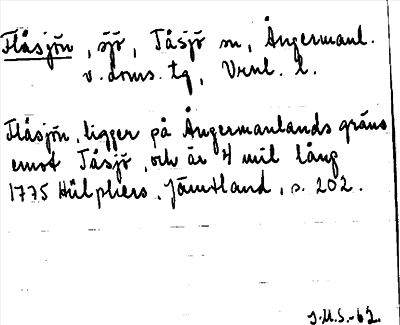 Flåsjön, sjö, Tåsjö sn, Ångermanl.
v. doms. tg, Vrnl. l.
Flåsjön, ligger på Ångermanlands gräns
emot Tåsjö, och är 4 mil lång
1775 Hülphers, Jämtland, s. 202.
J.M.S.-62.